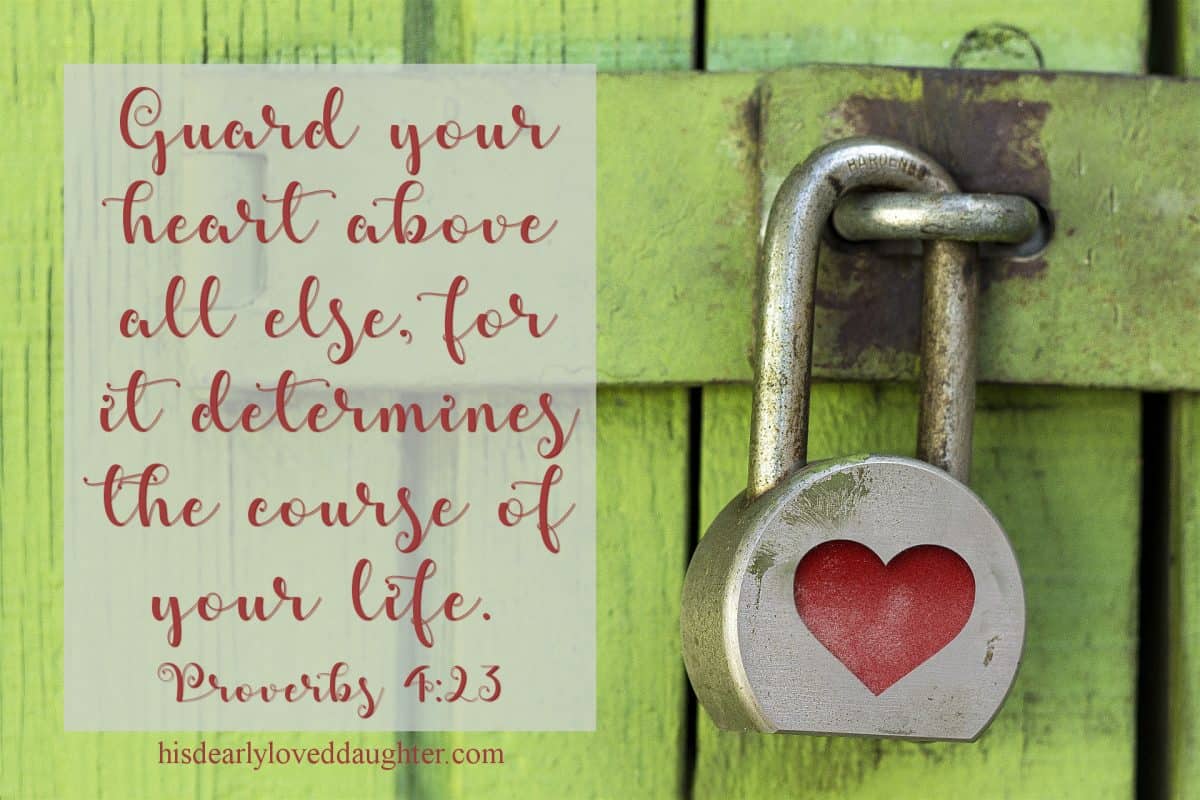 Guard your
heart above
all else, for
it determines
the course of
your life.
Proverbs 4:23
hisdearlyloveddaughter.com
HARDENED